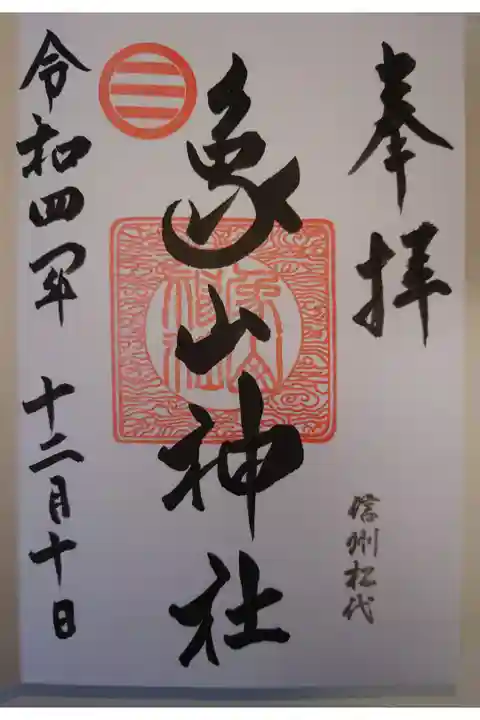 奉拝
信州松代
象山神社
象山神社
令和四年 十二月十日